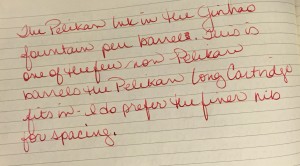 The Pelikan Ink in the Jinhao
fountain pen barrels. This is
one of the few non-Pelikan
barrels the Pelikan Long Cartridge
fits in. I do prefer the finer nib
for spacing.